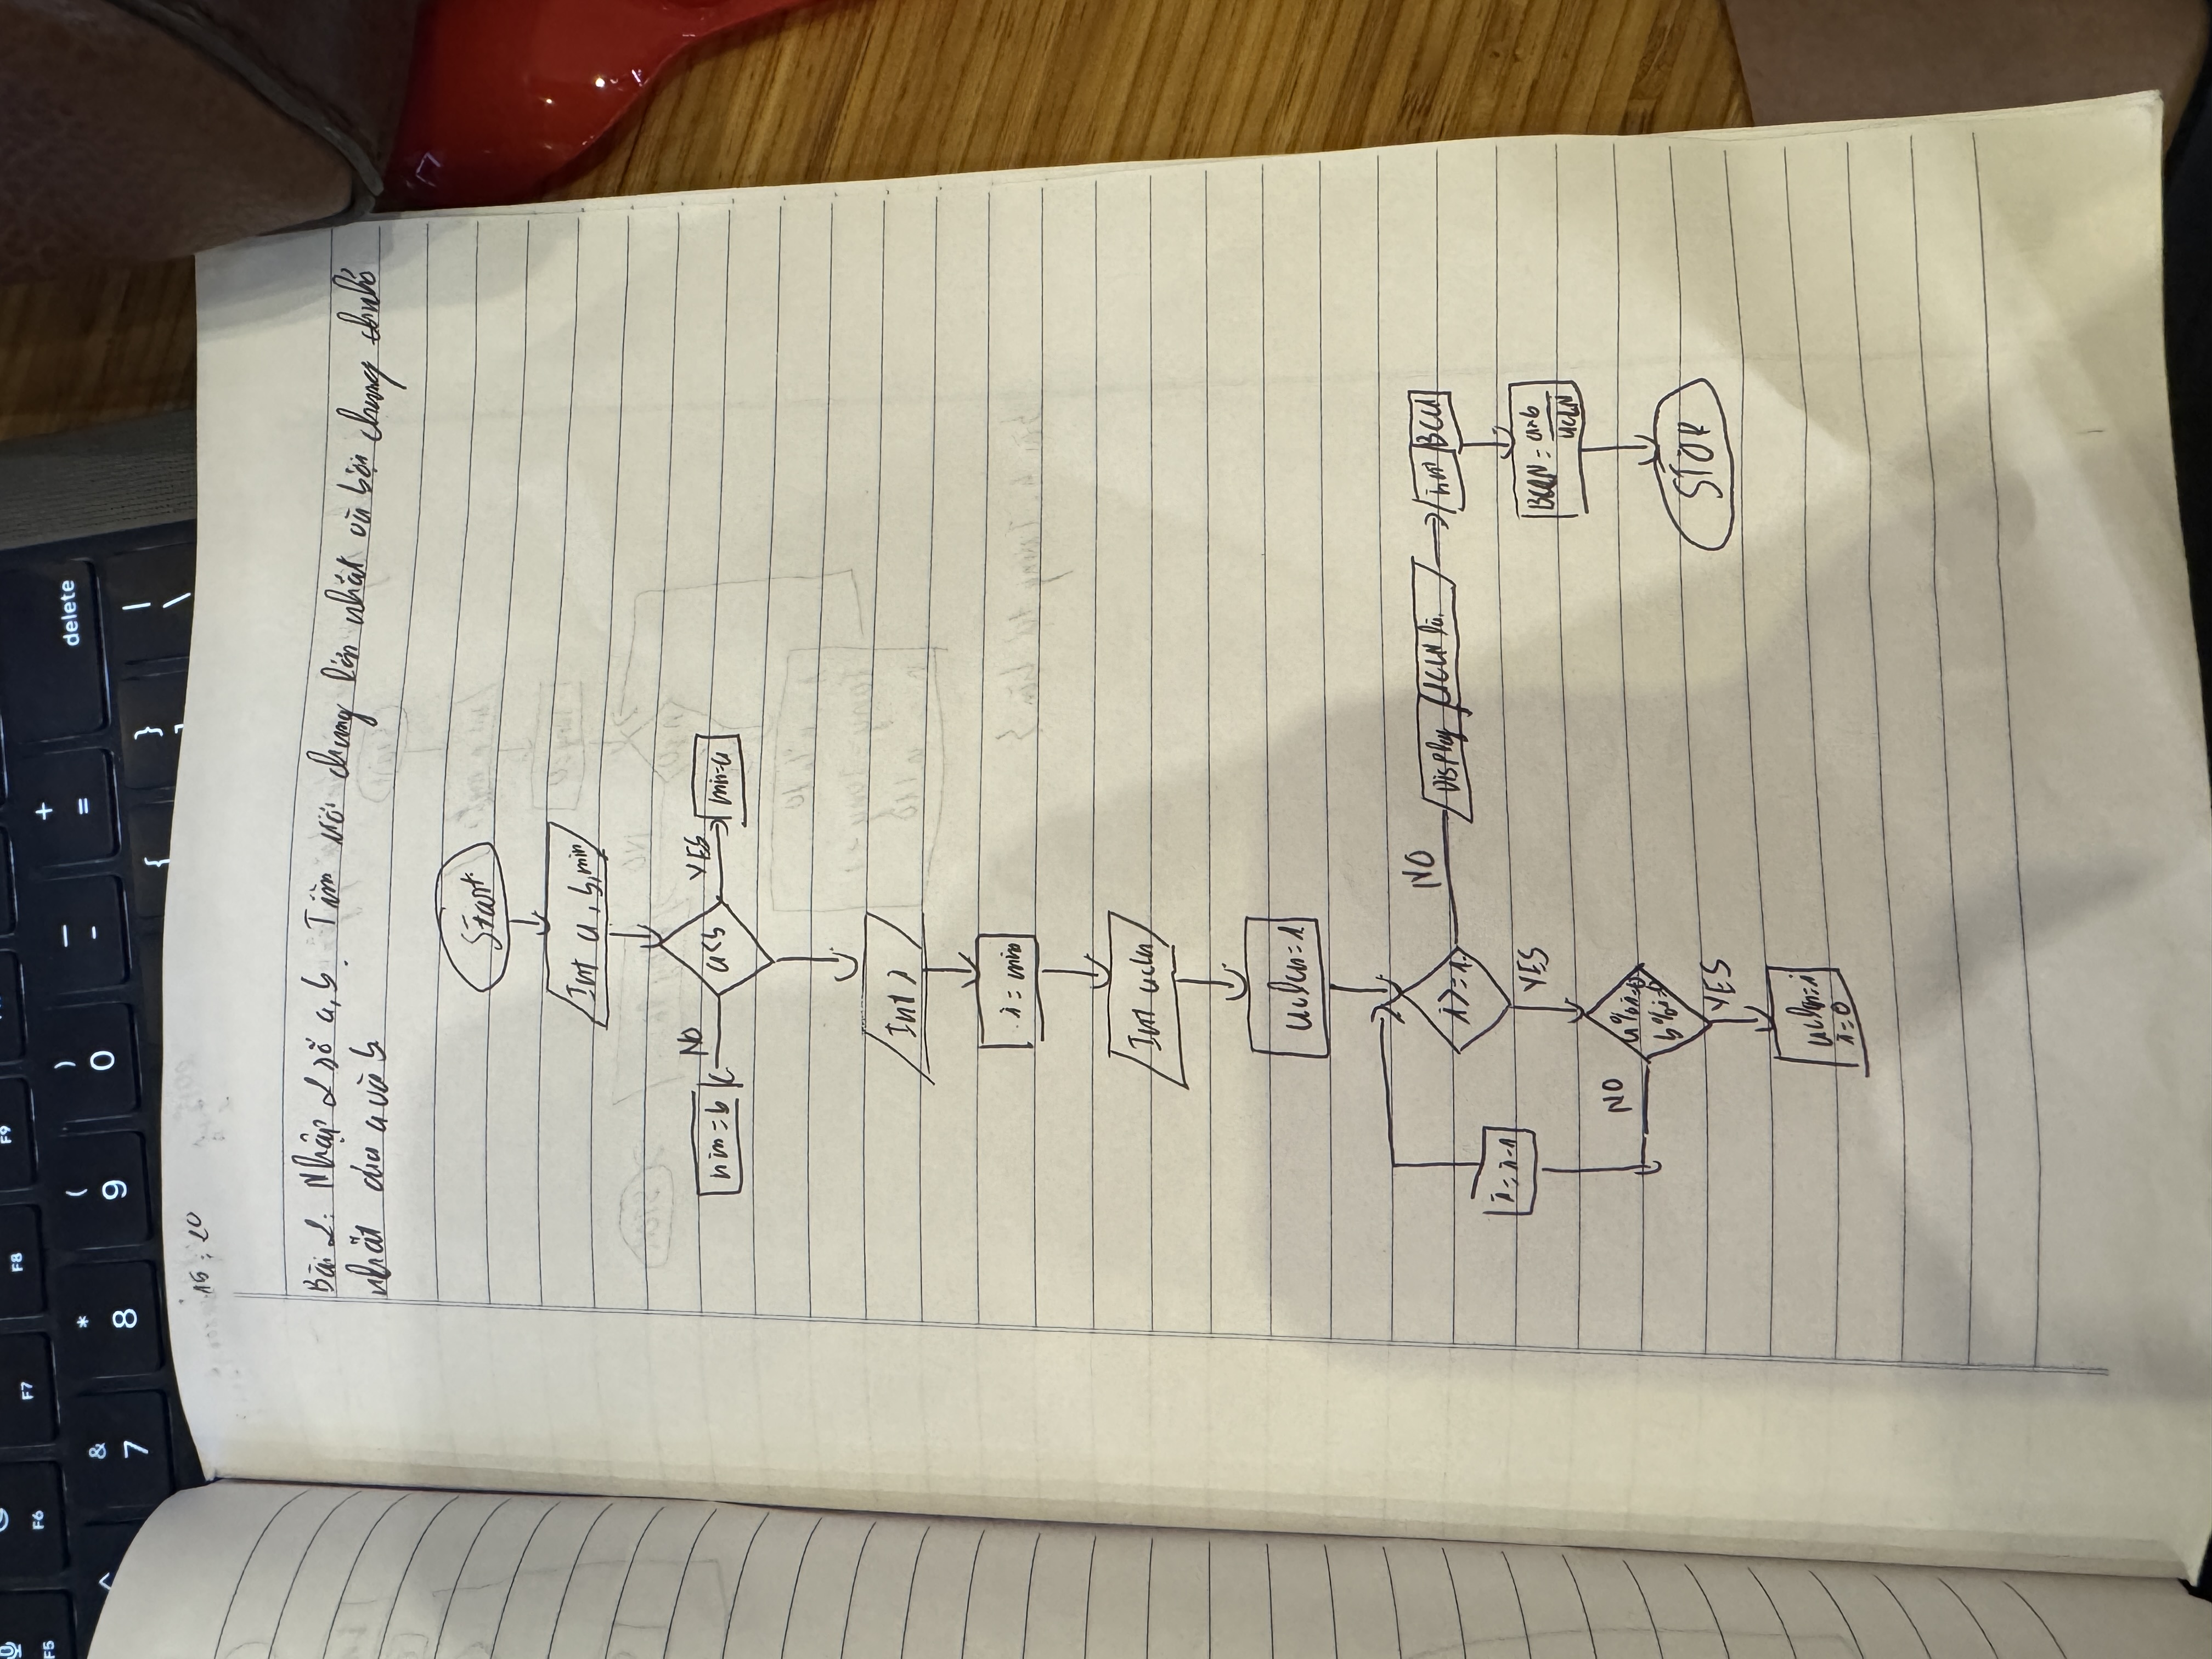 F5
F6
F7
F8
F9
& * ( ) — +
7 8 9 0 - = delete
{ } |
\
15:20
Bài 2: Nhập 2 số a, b. Tìm ước chung lớn nhất và bội chung nhỏ
nhất của a và b
Start
Int a, b, min
NO a<b YES
min=b min=a
Int i
i = min
Int ucln
ucln=1
i>=1 NO Display UCLN là Int BCNN
i=i-1
YES
BCNN = a×b
UCLN
NO
a%i=0
b%i=0
YES
STOP
ucln=i
i=0